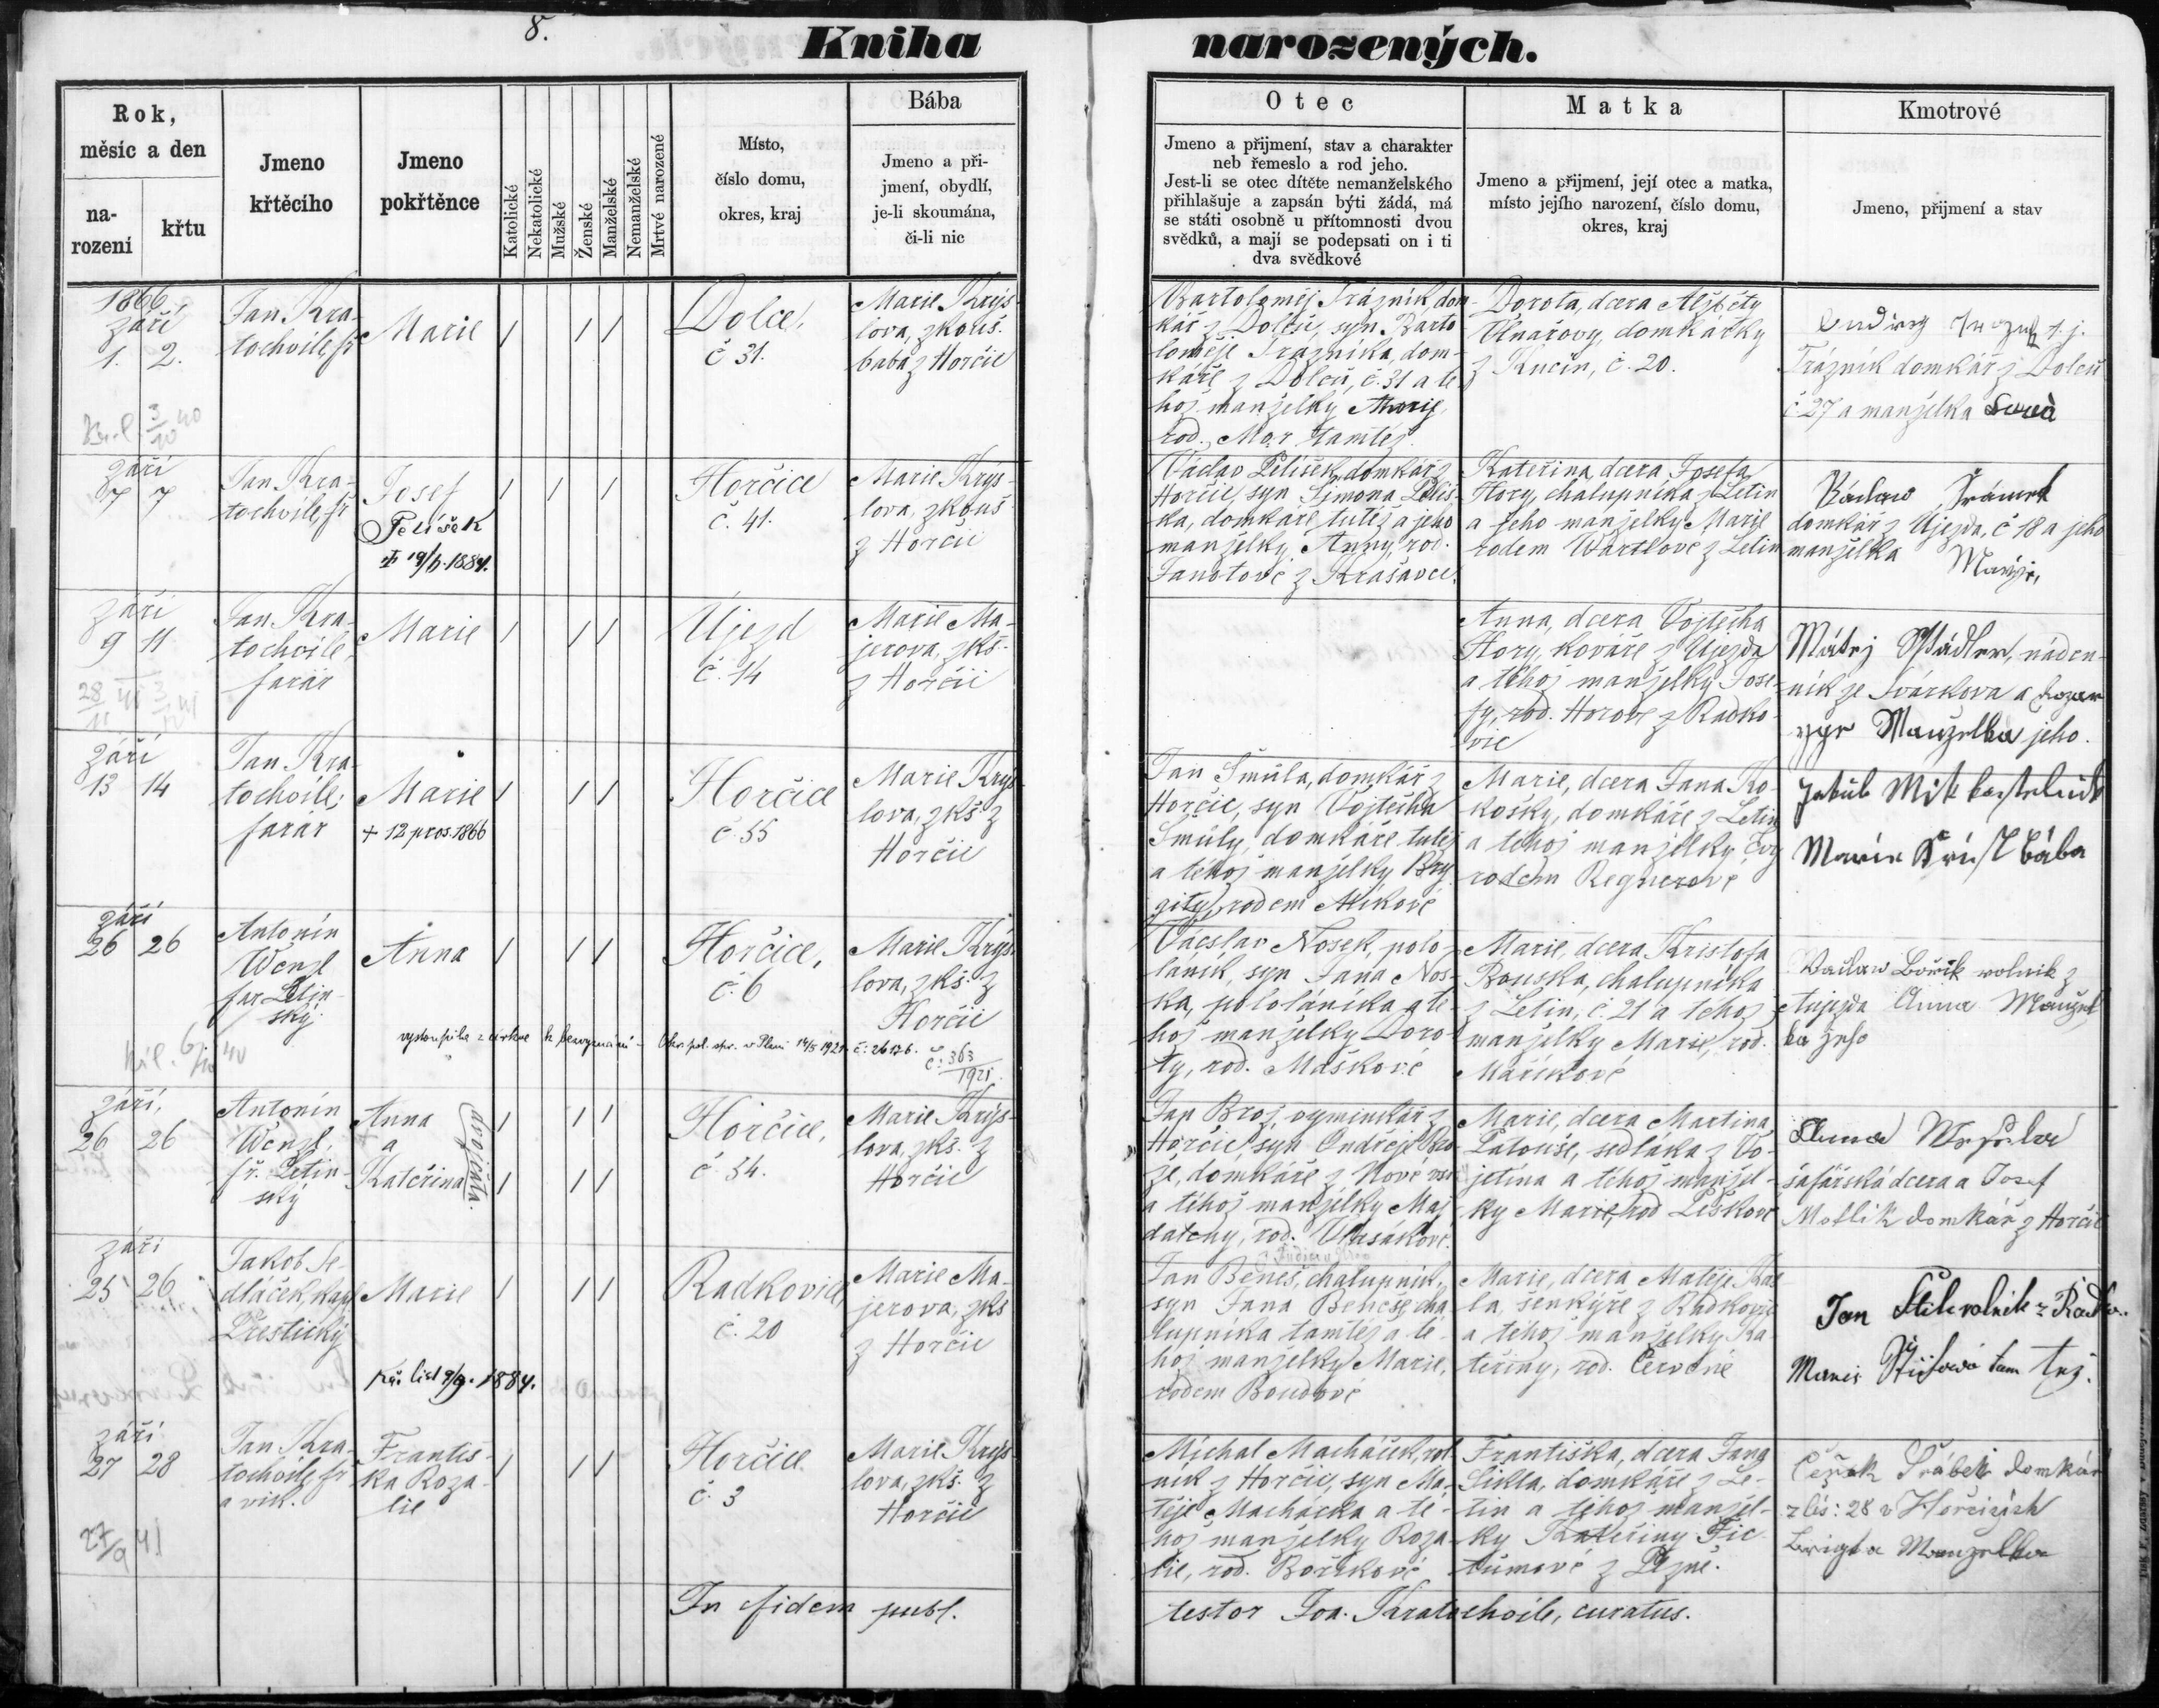 8.
Kniha narozených.
Rok,
měsíc a den
na-
rození
křtu
Jmeno
křtěcího
Jmeno
pokřtěnce
Katolické
Nekatolické
Mužské
Ženské
Manželské
Nemanželské
Mrtvé narozené
Místo,
číslo domu,
okres, kraj
Bába
Jmeno a při-
jmení, obydlí,
je-li skoumána,
či-li nic
Otec
Jmeno a přijmení, stav a charakter
neb řemeslo a rod jeho.
Jest-li se otec dítěte nemanželského
přihlašuje a zapsán býti žádá, má
se státi osobně u přítomnosti dvou
svědků, a mají se podepsati on i ti
dva svědkové
Matka
Jmeno a přijmení, její otec a matka,
místo jejího narození, číslo domu,
okres, kraj
Kmotrové
Jmeno, přijmení a stav
1866
září
1. 2.
Jan Kra-
tochvile, fř
Marie
Dolce,
č 31.
Marie Krys-
lova, zkouš.
baba z Horčic
Bartoloměj Trázník, dom-
kář z Dolců, syn Barto
loměje Trázníka, dom-
káře z Dolců, č. 31 a té-
hož manželky Marie,
rod. Mar tamtéž
Dorota, dcera Alžběty
Vlnařovy, domkářky
z Kucin, č. 20.
t. j.
Trázník domkář z Dolců
č 27 a manželka
září
7 7
Jan Kra-
tochvile, fř
Josef
Pelíšek
19/6.1884.
Horčice
č. 41.
Marie Krys-
lova, zkouš
z Horčic
Václav Pelíšek, domkář z
Horčic, syn Šimona Pelíš-
ka, domkáře tutéž a jeho
manželky Anny, rod.
Janotové z Krašovce.
Kateřina, dcera Josefa
Hory, chalupníka z Letin
a jeho manželky Marie
rodem Wartlové z Letin
Václaw Šrámek
domkář z Újezda, č 18 a jeho
manželka
září
9 11
28/11 41 3/12 41
Jan Kra-
tochvile,
farář
Marie
Újezd
č. 14
Marie Ma-
jerova, zkš.
z Horčic
Anna, dcera Vojtěcha
Hory, kováře z Újezda
a téhož manželky Jose-
fy, rod. Horové z Radko-
vic
Mátěj Stádler, náden-
ník ze Svárkova a
Manželka jeho.
září
13 14
Jan Kra-
tochvile,
farář
Marie
+ 12 pros. 1866
Horčice
č. 55
Marie Krys-
lova, zkš z
Horčic
Jan Šmůla, domkář z
Horčic, syn Vojtěcha
Šmůly, domkáře tutéž
a téhož manželky Bry
gity, rodem Alikové
Marie, dcera Jana Ko-
košky, domkáře z Letin
a téhož manželky Evy
rodem Regnerové
Jakub
bába
září
26 26
Antonín
Wenzl
far Letin-
ský.
Anna
Horčice,
č. 6
Marie Krys-
lova, zkš. z
Horčic
vystoupila z církve k bezvyznání - Okr. pol. spr. v Plzni 14/5 1921. č: 26176. č. 363/1921.
Václav Nosek, polo-
láník, syn Jana Nos-
ka, pololáníka a té-
hož manželky Doro-
ty, rod. Maškové
Marie, dcera Kristofa
Rouska, chalupníka
z Letin, č. 21 a téhož
manželky Marie, rod.
Maříkové
Wáclaw Bořík rolník z
Aujezda Anna Manžel
ka jeho
září,
26 26
Antonín
Wenzl,
fř. Letin-
ský
Anna
a
Kateřina
dvojčata.
Horčice,
č. 54.
Marie Krys-
lova, zkš. z
Horčic
Jan Brož, výminkář z
Horčic, syn Ondřeje Bro-
že, domkáře z Nové vsi
a téhož manželky Maj
daleny, rod. Vlasákové.
Marie, dcera Martina
Latouše, sedláka z Vo-
jetína a téhož manžel-
ky Marie, rod Liškové
Anna
šafářská dcera a Josef
Motlík domkář z Horčic
září
25 26
Jakob Se-
dláček, kapl
Přestický
Marie
Kř. list 9/9. 1884.
Radkovice
č. 20
Marie Ma-
jerova, zkš
z Horčic
Jan Beneš, chalupník,
syn Jana Beneše, cha-
lupníka tamtéž a té-
hož manželky Marie,
rodem Boudové
Marie, dcera Matěje Kal
la, šenkýře z Radkovic
a téhož manželky Ka-
teřiny, rod. Červené
Jan rolník z Radko..
tam též.
září
27 28
27/9 41
Jan Kra-
tochvile, fř
a vik.
Františ-
ka Roza-
lie
Horčice
č. 3
Marie Krys-
lova, zkš. z
Horčic
Michal Macháček, rol
ník z Horčic, syn Ma-
těje Macháčka a té-
hož manželky Roza-
lie, rod. Boříkové
Františka, dcera Jana
Sikla, domkáře z Le-
tin a téhož manžel-
ky Kateřiny Fic
tumové z Plzně.
domkář
z čís: 28 v Horčicích
Brigta Manzelka
In fidem publ. testor Joa. Kratochvile, curatus.